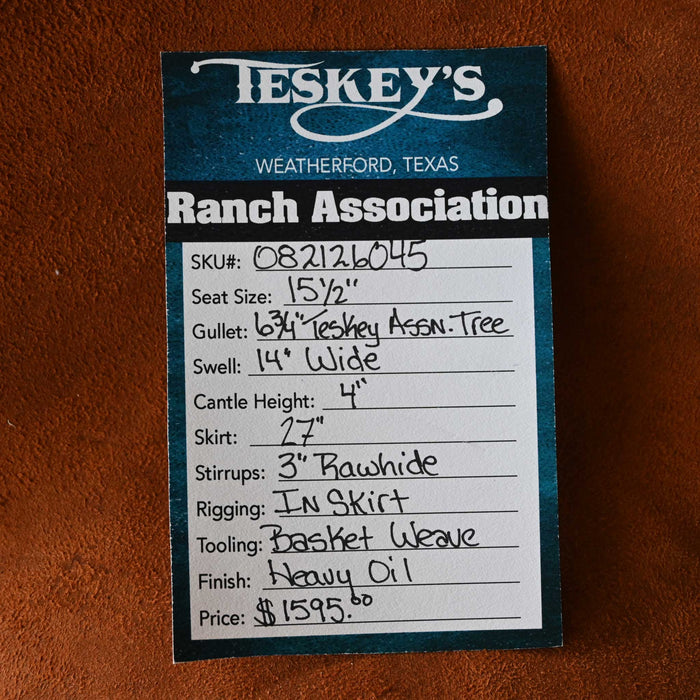 TESKEY'S
WEATHERFORD, TEXAS
Ranch Association
SKU#: 082126045
Seat Size: 15½"
Gullet: 6¾" Teskey Assn. Tree
Swell: 14" Wide
Cantle Height: 4"
Skirt: 27"
Stirrups: 3" Rawhide
Rigging: In Skirt
Tooling: Basket Weave
Finish: Heavy Oil
Price: $1595.00